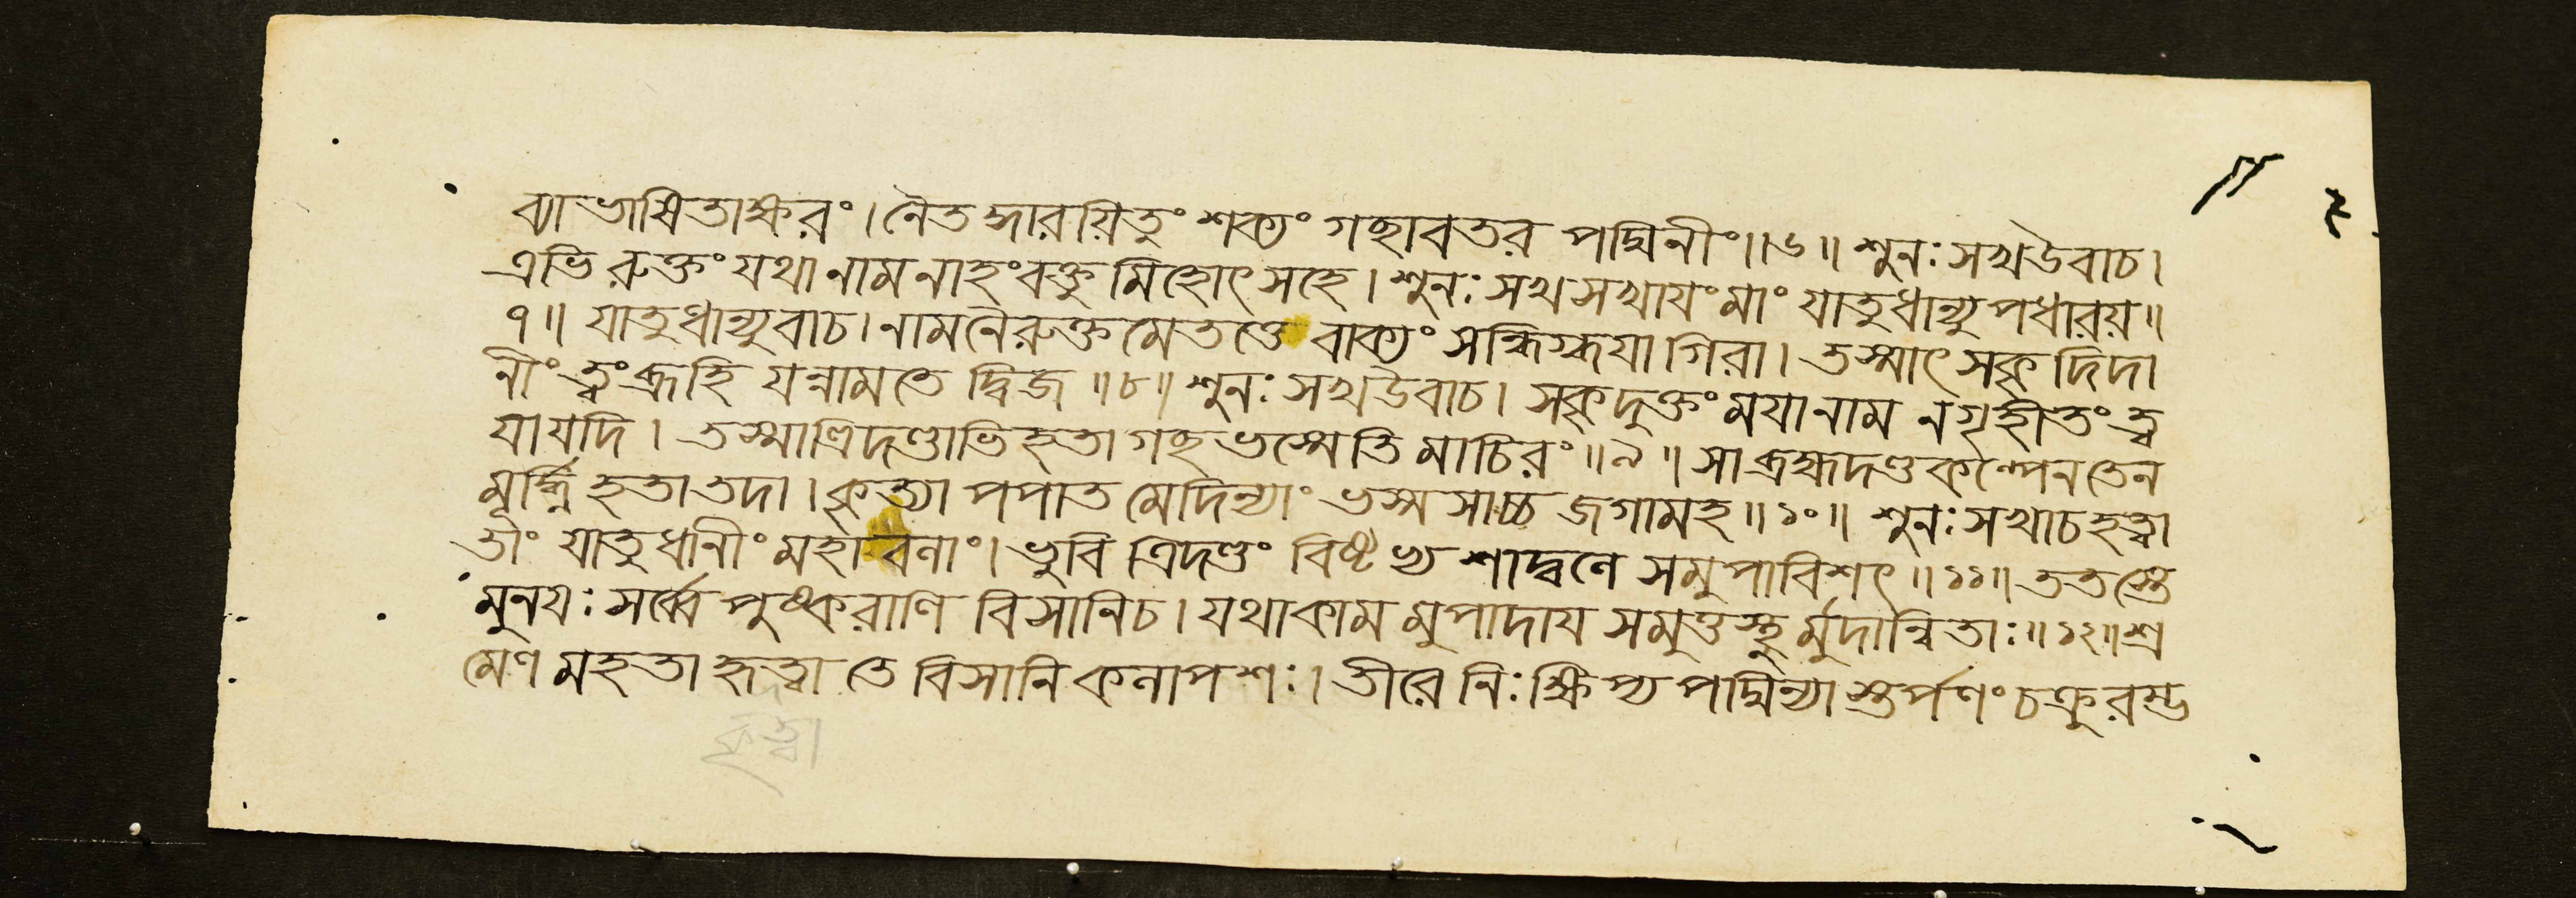 ব্যাভাষিতাক্ষরং। নৈতদ্ধারয়িতুং শক্যং গচ্ছাবতর পদ্মিনীং॥৬॥ শুনঃসখউবাচ।
এভিরুক্তং যথানামনাহংবক্তুমিহোৎসহে। শুনঃসখসখাযংমাং যাতুধান্যুপধারয়॥
৭॥ যাতুধান্যুবাচ। নামনৈরুক্তমেতত্তে বাক্যং সন্ধিগ্ধযাগিরা। তস্মাৎসকৃদিদা
নীংত্বংব্রূহি যন্নামতে দ্বিজ॥৮॥ শুনঃসখউবাচ। সকৃদুক্তংময়ানাম নগৃহীতংত্ব
যাযদি। তস্মাত্রিদণ্ডাভিহতা গচ্ছভস্মেতিমাচিরং॥৯॥ সাব্রহ্মদণ্ডকল্পেনতেন
মূর্দ্ধ্নিহতাতদা। কৃত্যা পপাত মেদিন্যাং ভস্মসাচ্চ জগামহ॥১০॥ শুনঃসখাচহত্বা
তাং যাতুধানীংমহাবলাং। ভুবি ত্রিদণ্ডং বিষ্টভ্য শাদ্বলে সমুপাবিশৎ॥১১॥ ততস্তে
মুনযঃসর্ব্বে পুষ্করাণি বিসানিচ। যথাকামমুপাদায সমুত্তস্থুর্মুদান্বিতাঃ॥১২॥শ্র
মেণমহতাহৃত্বা তে বিসানিকলাপশঃ। তীরেনিঃক্ষিপ্যপদ্মিন্যাস্তর্পণংচক্রুরম্ভ
কৃত্বা